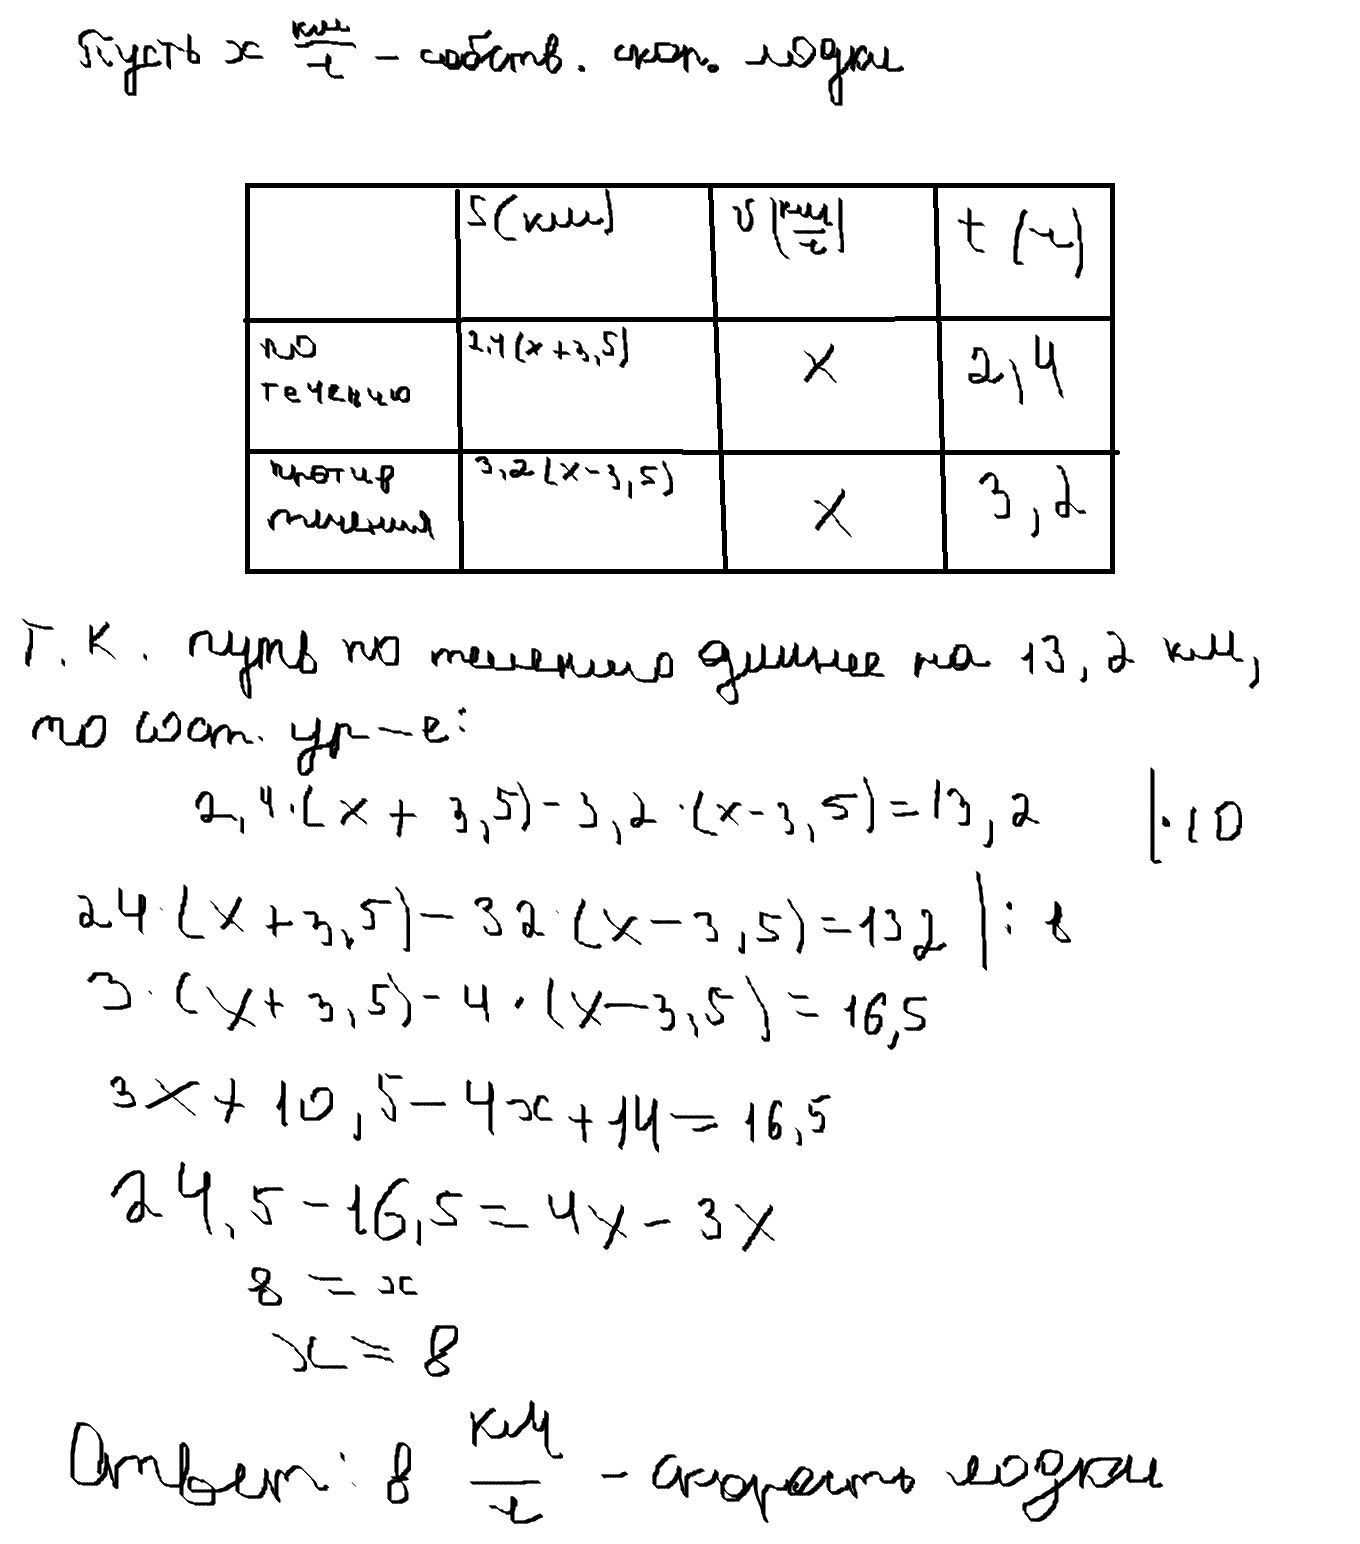 Пусть x км/ч – собств. скор. лодки
S(км) v(км/ч) t(ч)
по течению 2,4(x+3,5) x 2,4
против течения 3,2(x-3,5) x 3,2
Т.К. путь по течению длинее на 13,2 км,
то сост. ур-е:
2,4·(x+3,5)-3,2·(x-3,5)=13,2 |·10
24·(x+3,5)-32·(x-3,5)=132 |:8
3·(x+3,5)-4·(x-3,5)=16,5
3x+10,5-4x+14=16,5
24,5-16,5=4x-3x
8=x
x=8
Ответ: 8 км/ч – скорость лодки